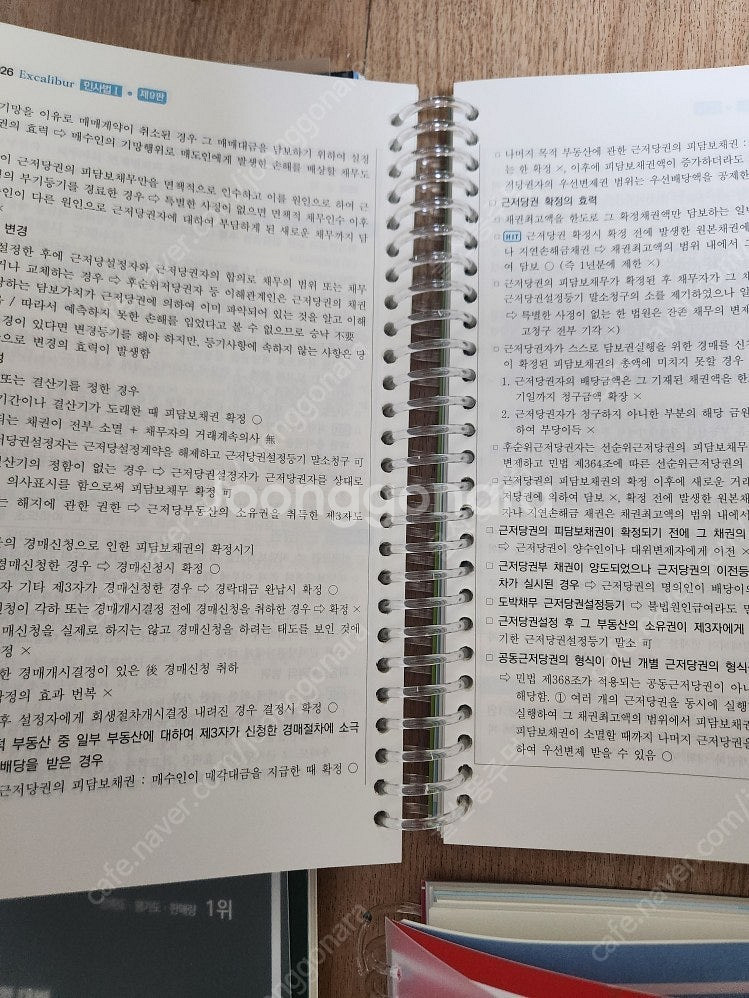 26 Excalibur 민사법 I • 제9판
기망을 이유로 매매계약이 취소된 경우 그 매매대금을 담보하기 위하여 설정
권의 효력 ⇨ 매수인의 기망행위로 매도인에게 발생한 손해를 배상할 채무도
이 근저당권의 피담보채무만을 면책적으로 인수하고 이를 원인으로 하여 근
의 부기등기를 경료한 경우 ⇨ 특별한 사정이 없으면 면책적 채무인수 이후
인이 다른 원인으로 근저당권자에 대하여 부담하게 된 새로운 채무까지 담
×
변경
설정한 후에 근저당설정자와 근저당권자의 합의로 채무의 범위 또는 채무
거나 교체하는 경우 ⇨ 후순위저당권자 등 이해관계인은 근저당권의 채권
하는 담보가치가 근저당권에 의하여 이미 파악되어 있는 것을 알고 이해
/ 따라서 예측하지 못한 손해를 입었다고 볼 수 없으므로 승낙 不要
경이 있다면 변경등기를 해야 하지만, 등기사항에 속하지 않는 사항은 당
으로 변경의 효력이 발생함
또는 결산기를 정한 경우
기간이나 결산기가 도래한 때 피담보채권 확정 ○
되는 채권이 전부 소멸 + 채무자의 거래계속의사 無
저당권설정자는 근저당설정계약을 해제하고 근저당권설정등기 말소청구 可
산기의 정함이 없는 경우 ⇨ 근저당권설정자가 근저당권자를 상대로
의사표시를 함으로써 피담보채무 확정 可
는 해지에 관한 권한 ⇨ 근저당부동산의 소유권을 취득한 제3자도
의 경매신청으로 인한 피담보채권의 확정시기
경매신청한 경우 ⇨ 경매신청시 확정 ○
자 기타 제3자가 경매신청한 경우 ⇨ 경락대금 완납시 확정 ○
신청이 각하 또는 경매개시결정 전에 경매신청을 취하한 경우 ⇨ 확정 ×
매신청을 실제로 하지는 않고 경매신청을 하려는 태도를 보인 것에
정 ×
한 경매개시결정이 있은 後 경매신청 취하
확정의 효과 번복 ×
후 설정자에게 회생절차개시결정 내려진 경우 결정시 확정 ○
적 부동산 중 일부 부동산에 대하여 제3자가 신청한 경매절차에 소극
배당을 받은 경우
근저당권의 피담보채권 : 매수인이 매각대금을 지급한 때 확정 ○
□ 나머지 목적 부동산에 관한 근저당권의 피담보채권 :
는 한 확정 ×, 이후에 피담보채권액이 증가하더라도
저당권자의 우선변제권 범위는 우선배당액을 공제한
□ 근저당권 확정의 효력
□ 채권최고액을 한도로 그 확정채권액만 담보하는 일반
□ HIT 근저당권 확정시 확정 전에 발생한 원본채권에
나 지연손해금채권 ⇨ 채권최고액의 범위 내에서
여 담보 ○ (즉 1년분에 제한 ×)
□ 근저당권의 피담보채무가 확정된 후 채무자가 그 채
근저당권설정등기 말소청구의 소를 제기하였으나 일
⇨ 특별한 사정이 없는 한 법원은 잔존 채무의 변제
고청구 전부 기각 ×)
□ 근저당권자가 스스로 담보권실행을 위한 경매를 신청
이 확정된 피담보채권의 총액에 미치지 못할 경우
1. 근저당권자의 배당금액은 그 기재된 채권액을 한
기일까지 청구금액 확장 ×
2. 근저당권자가 청구하지 아니한 부분의 해당 금원
하여 부당이득 ×
□ 후순위근저당권자는 선순위근저당권의 피담보채무
변제하고 민법 제364조에 따른 선순위근저당권의
□ 근저당권의 피담보채권의 확정 이후에 새로운 거래
저당권에 의하여 담보 ×, 확정 전에 발생한 원본채
자나 지연손해금 채권은 채권최고액의 범위 내에서
□ 근저당권의 피담보채권이 확정되기 전에 그 채권의
⇨ 근저당권이 양수인이나 대위변제자에게 이전 ×
□ 근저당권부 채권이 양도되었으나 근저당권의 이전등
차가 실시된 경우 ⇨ 근저당권의 명의인이 배당이의
□ 도박채무 근저당권설정등기 ⇨ 불법원인급여라도 말
□ 근저당권설정 후 그 부동산의 소유권이 제3자에게
기한 근저당설정등기 말소 可
□ 공동근저당권의 형식이 아닌 개별 근저당권의 형식
⇨ 민법 제368조가 적용되는 공동근저당권이 아
해당함. ① 여러 개의 근저당권을 동시에 실행
실행하여 그 채권최고액의 범위에서 피담보채권
피담보채권이 소멸할 때까지 나머지 근저당권을
하여 우선변제 받을 수 있음 ○
joonggonara
cafe.naver.com/joonggonara
1위